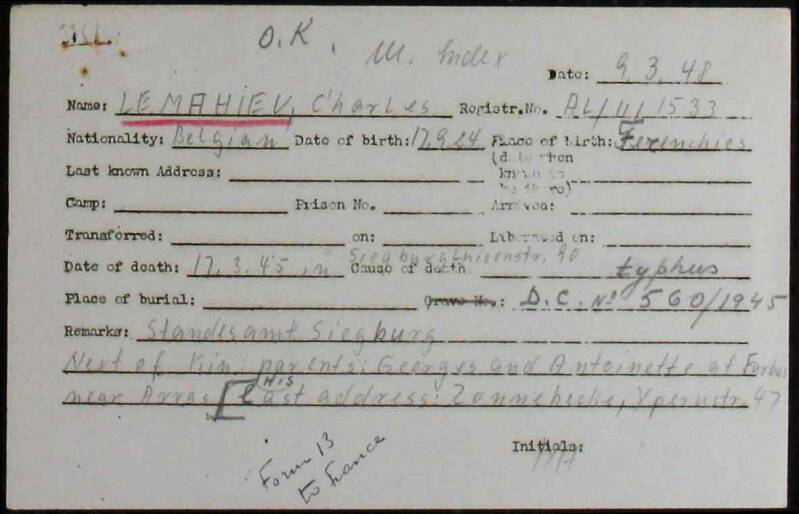 O.K. M. Index
Date: 9.3.48
Name: LEMAHIEU, Charles Registr.No. AL/U/1533
Nationality: Belgian Date of birth: 17.9.24 Place of birth: Ferenchies
(date then known to be there)
Last known Address:
Camp: Prison No. Arrived:
Transferred: on: Liberated on:
Siegburg Luisenstr. 90
Date of death: 17.3.45 in Cause of death typhus
Place of burial: Grave No.: D.C. No 560/1945
Remarks: Standesamt Siegburg
Next of Kin: parents: Georges and Antoinette at Farbus
near Arras [His last address: Zonnebecke, Ypernstr. 47
Form 13
to France
Initials: